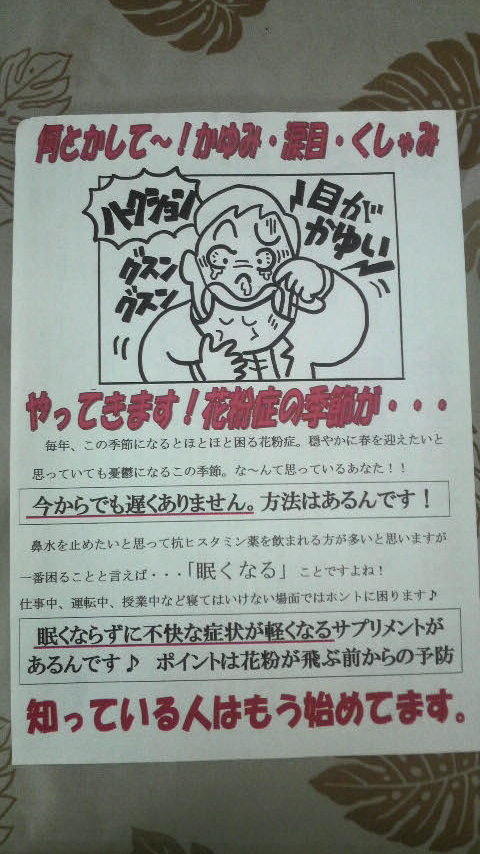 何とかして～！かゆみ・涙目・くしゃみ
ハークション
目が
かゆい
グスン
グスン
やってきます！花粉症の季節が・・・
毎年、この季節になるとほとほと困る花粉症。穏やかに春を迎えたいと
思っていても憂鬱になるこの季節。な～んて思っているあなた！！
今からでも遅くありません。方法はあるんです！
鼻水を止めたいと思って抗ヒスタミン薬を飲まれる方が多いと思いますが
一番困ることと言えば・・・「眠くなる」ことですよね！
仕事中、運転中、授業中など寝てはいけない場面ではホントに困ります♪
眠くならずに不快な症状が軽くなるサプリメントが
あるんです♪ ポイントは花粉が飛ぶ前からの予防
知っている人はもう始めてます。